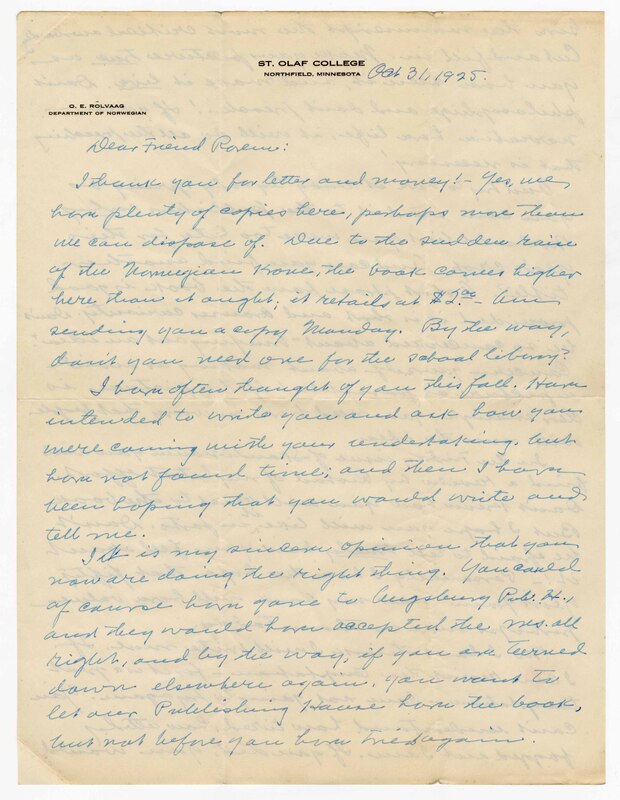 ST. OLAF COLLEGE
NORTHFIELD, MINNESOTA
Oct 31, 1925.
O. E. RÖLVAAG
DEPARTMENT OF NORWEGIAN
Dear Friend Rorem:
Thank you for letter and money! - Yes, we
have plenty of copies here, perhaps more than
we can dispose of. Due to the sudden raise
of the Norwegian Krone, the book comes higher
here than it ought; it retails at $2.00 - Am
sending you a copy Monday. By the way,
don't you need one for the school library?
I have often thought of you this fall. Have
intended to write you and ask how you
were coming with your undertaking, but
have not found time; and then I have
been hoping that you would write and
tell me.
It is my sincere opinion that you
now are doing the right thing. You could
of course have gone to Augsburg Pub. H.,
and they would have accepted the ms. all
right, and by the way, if you are turned
down elsewhere again, you want to
let our Publishing House have the book,
but not before you have tried again.